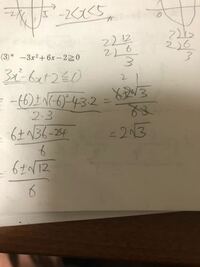 -2<x<5
(3)* -3x²+6x-2≧0
3x²-6x+2≦0
= -(-6)±√(-6)²-4·3·2 / 2·3
= 6±√36-24 / 6
= 6±√12 / 6
2)12
2)6
3
= 2√3
2)12
2)6
3